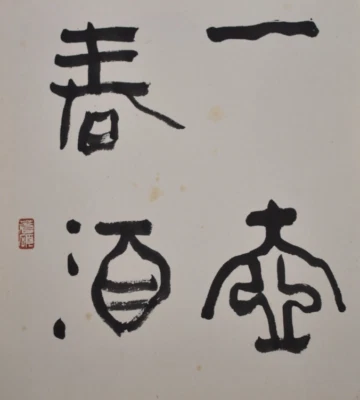 一壺
春酒